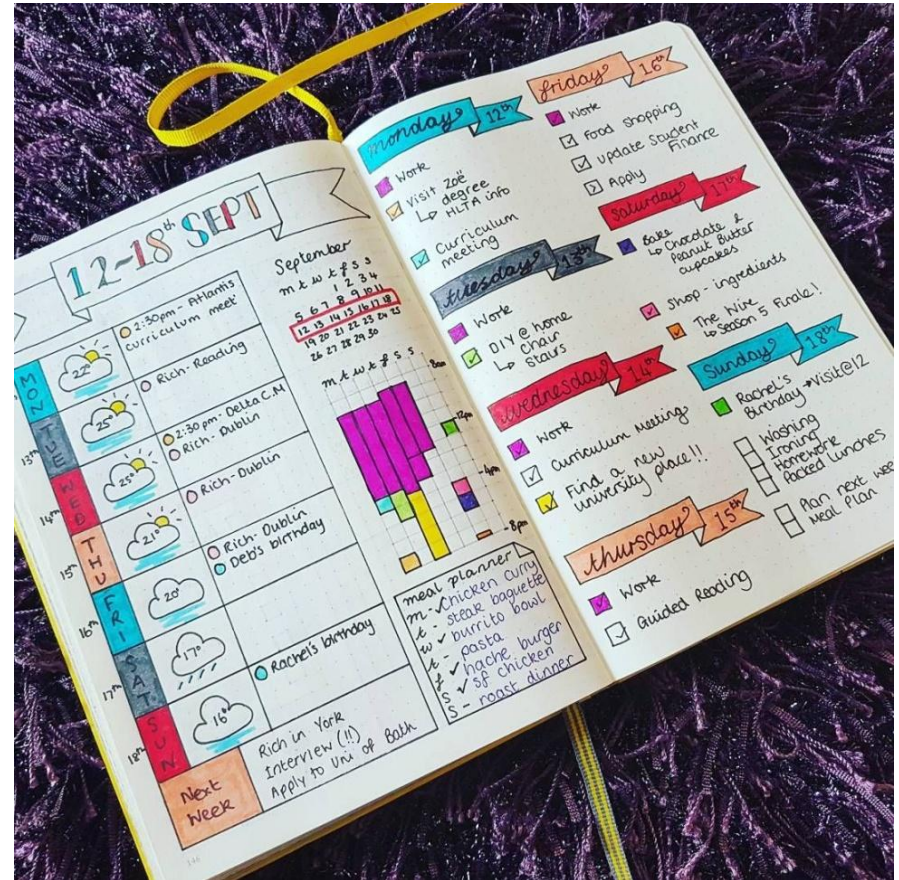 12-18th SEPT
MON
22°
2:30pm - Atlantis
curriculum meet
13th
TUE
25°
Rich - Reading
14th
WED
25°
2:30pm - Delta C.M
Rich - Dublin
15th
THU
21°
Rich - Dublin
16th
FRI
20°
Rich - Dublin
Deb's birthday
17th
SAT
17°
18th
SUN
16°
Rachel's birthday
Next
Week
Rich in York
Interview (!!)
Apply to Uni of Bath
September
m t w t f s s
1 2 3 4
5 6 7 8 9 10 11
12 13 14 15 16 17 18
19 20 21 22 23 24 25
26 27 28 29 30
m t w t f s s
8am
12pm
-4pm
-8pm
meal planner
m - chicken curry
t - steak baguette
w burrito bowl
t - pasta
f hache burger
s sf chicken
s - roast dinner
monday 12th
Work
Visit Zoë
degree
HLTA info
Curriculum
meeting
tuesday 13th
Work
DIY @ home
Chair
Stairs
wednesday 14th
Work
Curriculum Meeting
Find a new
university place!!
thursday 15th
Work
Guided Reading
friday 16th
Work
Food shopping
update Student
Finance
Apply
saturday 17th
Bake
Chocolate &
Peanut Butter
cupcakes
Shop - ingredients
The Wire
Season 5 Finale!
Sunday 18th
Rachel's
Birthday → Visit@12
Washing
Ironing
Homework
Packed lunches
Plan next wee
Meal Plan